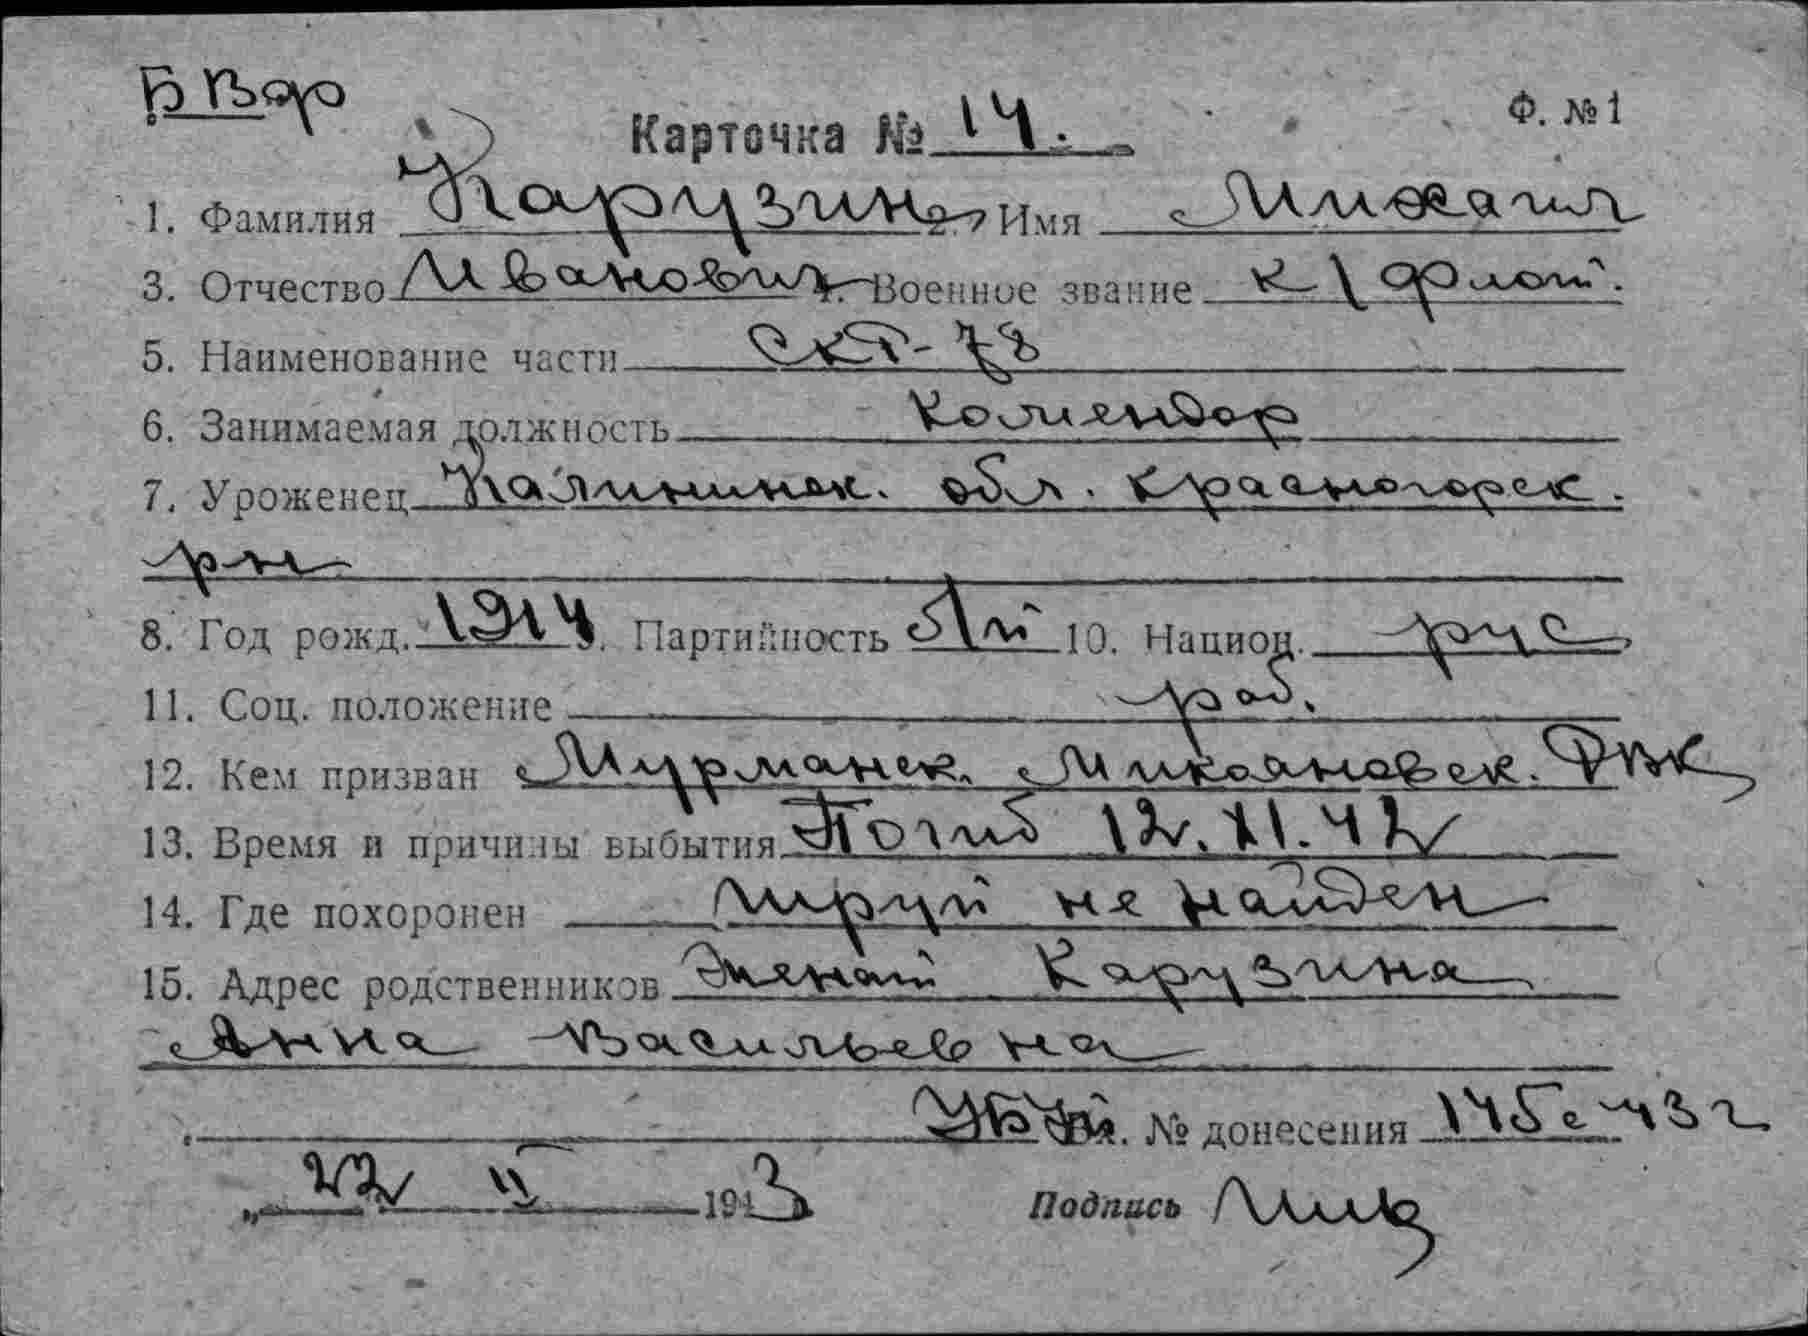 Б Вдр
Карточка № 14. Ф. № 1
1. Фамилия Карузин 2. Имя Михаил
3. Отчество Иванович 4. Военное звание к/флот.
5. Наименование части СКР-78
6. Занимаемая должность комендор
7. Уроженец Калининск. обл. Красногорск.
рн
8. Год рожд. 1914 9. Партийность б/п 10. Национ. рус
11. Соц. положение раб.
12. Кем призван Мурманск. Микояновск. РВК
13. Время и причины выбытия Погиб 12.XI.42
14. Где похоронен труп не найден
15. Адрес родственников Женат Карузина
Анна Васильевна
Вх. № донесения 145с 43 г
„ 22 II 1943 Подпись